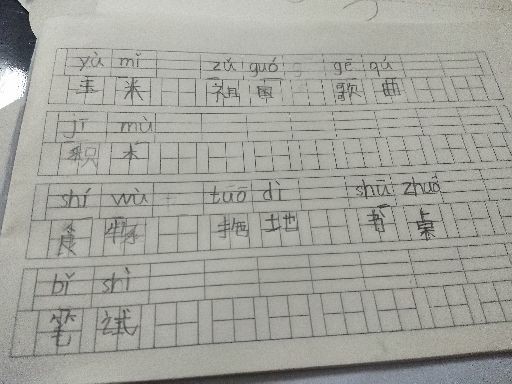 yù mǐ zǔ guó gē qǔ
玉 米 祖 国 歌 曲
jī mù
积 木
shí wù tuō dì shū zhuō
食 物 拖 地 书 桌
bǐ shì
笔 试